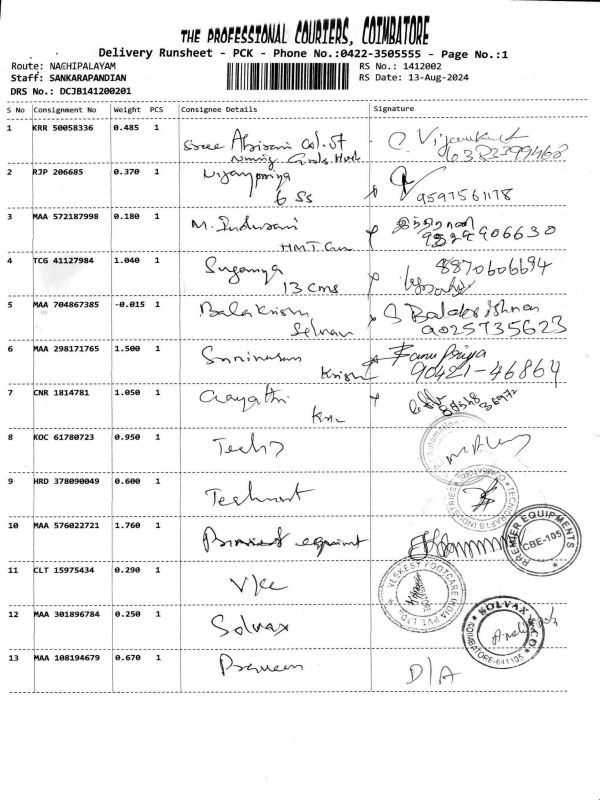 THE PROFESSIONAL COURIERS, COIMBATORE
Delivery Runsheet - PCK - Phone No.:0422-3505555 - Page No.:1
Route: NACHIPALAYAM
RS No.: 1412002
Staff: SANKARAPANDIAN
RS Date: 13-Aug-2024
DRS No.: DCJB141200201
S No Consignment No Weight PCS Consignee Details Signature
1 KRR 50058336 0.485 1 Sree
6383399468
2 RJP 206685 0.370 1 Vijaypriya
6 SS 9597561178
3 MAA 572187998 0.180 1 M. Indurani இந்திராணி
HMT
4 TCG 41127984 1.040 1 Suganya 8870606694
13 cms
5 MAA 704867385 -0.015 1 Balakrishn S Balakrishnan
Selvan 9025735623
6 MAA 298171765 1.500 1 Srinivasan Banu Priya
Krish 90421-46864
7 CNR 1814781 1.050 1 Gayathri
8 KOC 61780723 0.950 1
9 HRD 378090049 0.600 1
TECNICRAFTS INDUSTRIES
10 MAA 576022721 1.760 1
PREMIER EQUIPMENTS
CBE-105
11 CLT 15975434 0.290 1 Vkc
VEEKESY FOOTCARE INDIA PVT. LTD.
12 MAA 301896784 0.250 1 Solvax
SOLVAX & CO.
COIMBATORE-641105
13 MAA 108194679 0.670 1 Praveen D/A